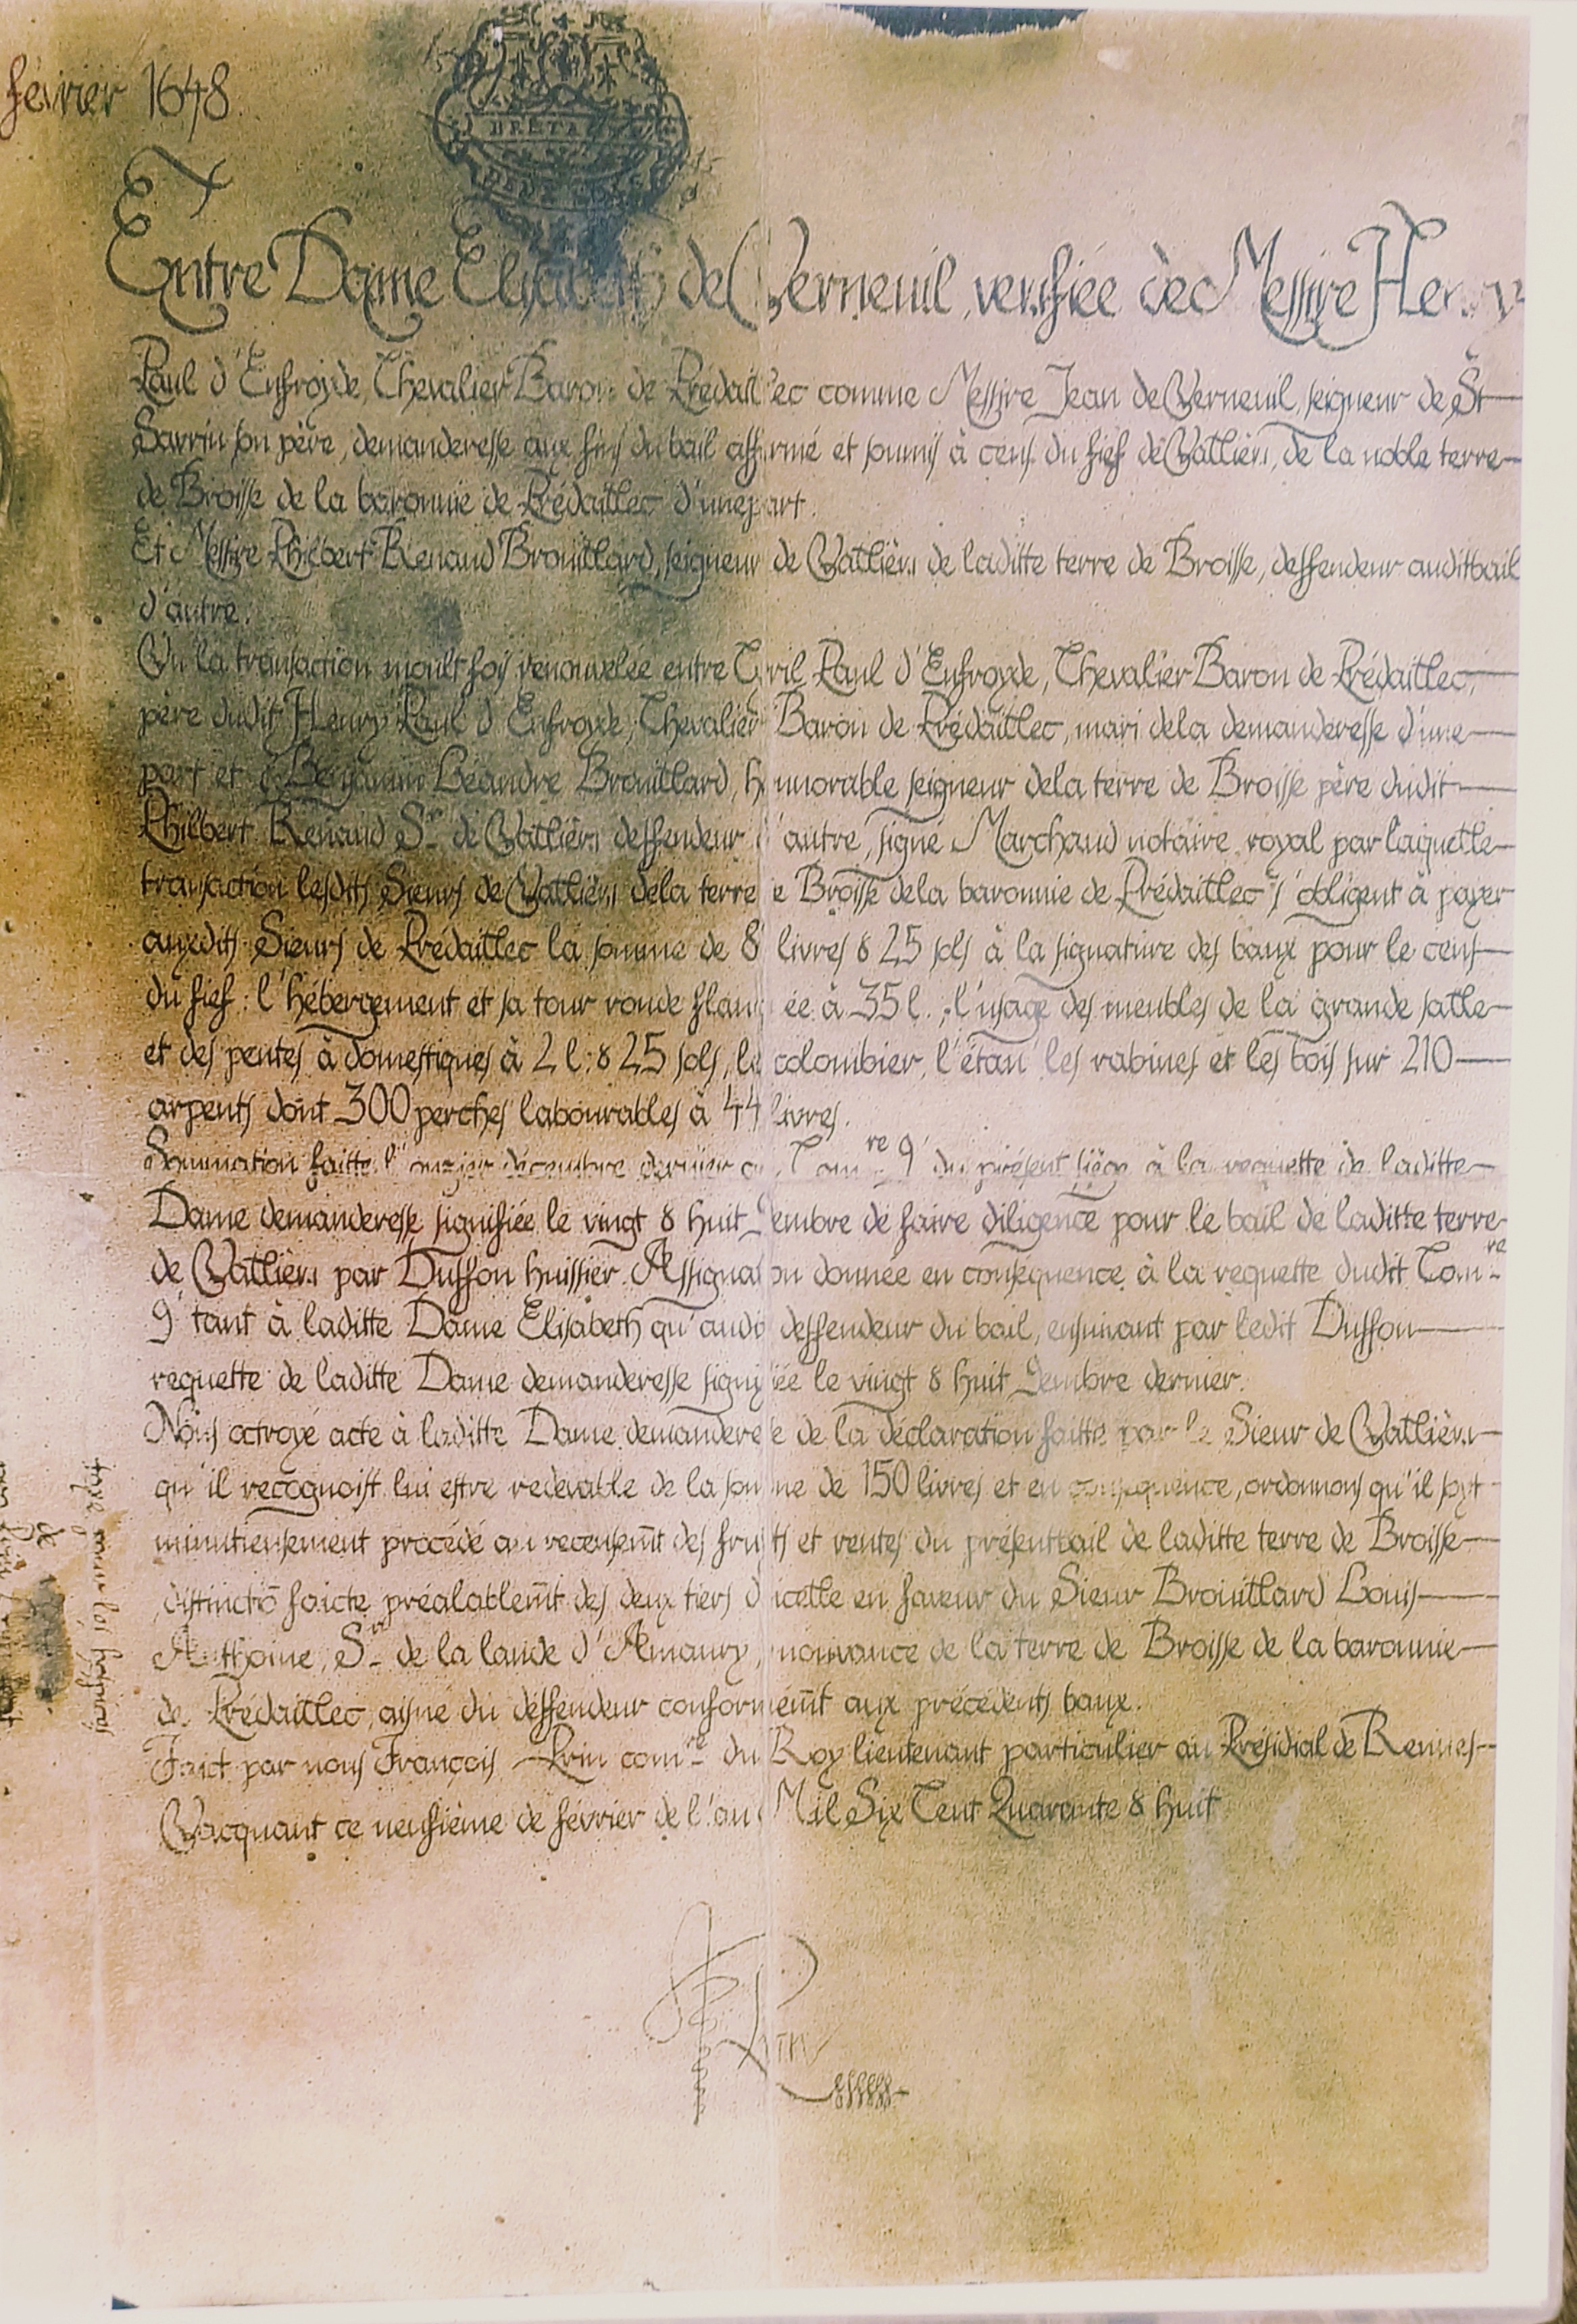 février 1648
BRETAGNE
Entre Dame Elisabeth de Verneuil, veufiée de Messire Henry
Paul d'Enfroyde, Chevalier Baron de Prédaillec comme Messire Jean de Verneuil, seigneur de St
Sarrin son père, demanderesse aux fins du bail affirmé et soumis à cens du fief de Vallièrs, de la noble terre
de Broisse de la baronnie de Prédaillec d'une part.
Et Messire Philbert Renaud Brouillard, seigneur de Vallièrs de laditte terre de Broisse, deffendeur auditbail
d'autre.
Vu la transaction moult fois renouvelée entre Cyril Paul d'Enfroyde, Chevalier Baron de Prédaillec,
père dudit Henry Paul d'Enfroyde, Chevalier Baron de Prédaillec, mari dela demanderesse d'une
part et Benjamin Léandre Brouillard, honnorable seigneur dela terre de Broisse père dudit
Philbert Renaud Sr de Vallièrs deffendeur d'autre, signé Marchand notaire royal par laquelle
transaction lesdits Sieurs de Vallièrs dela terre de Broisse dela baronnie de Prédaillec s'obligent à payer
auxdits Sieurs de Prédaillec la somme de 8 livres & 25 sols à la signature des baux pour le cens
du fief : l'hébergement et sa tour ronde flanquée à 35 l. ; l'usage des meubles de la grande salle
et des pentes à domestiques à 2 l. & 25 sols, le colombier, l'étan les rabines et les bois sur 210
arpents dont 300 perches labourables à 44 livres.
Sommation faitte l' décembre dernier Comre 9 du présent siège à la requette de laditte
Dame demanderesse signifiée le vingt & huit 9embre de faire diligence pour le bail de laditte terre
de Vallièrs par Duffon huissier. Assignation donnée en conséquence à la requette dudit Comre
9 tant à laditte Dame Elisabeth qu'audit deffendeur du bail, ensuivant par ledit Duffon
requette de laditte Dame demanderesse signifiée le vingt & huit 9embre dernier.
Nous octroyé acte à laditte Dame demanderesse de la déclaration faitte par le Sieur de Vallièrs
qu'il recognoist lui estre redevable de la somme de 150 livres et en conséquence, ordonnons qu'il soyt
minutieusement procédé au recensem̃t des fruits et rentes du présent bail de laditte terre de Broisse
distinctõ faicte préalablem̃t des deux tiers d'icelle en faveur du Sieur Brouillard Louis
Anthoine, Sr de la lande d'Amaury, mouvance de la terre de Broisse de la baronnie
de Prédaillec, aisné du deffendeur conformém̃t aux précédents baux.
Faict par nous François Prin comre du Roy lieutenant particulier au Présidial de Rennes
Vacquant ce neufième de février de l'an Mil Six Cent Quarante & huit
Prin